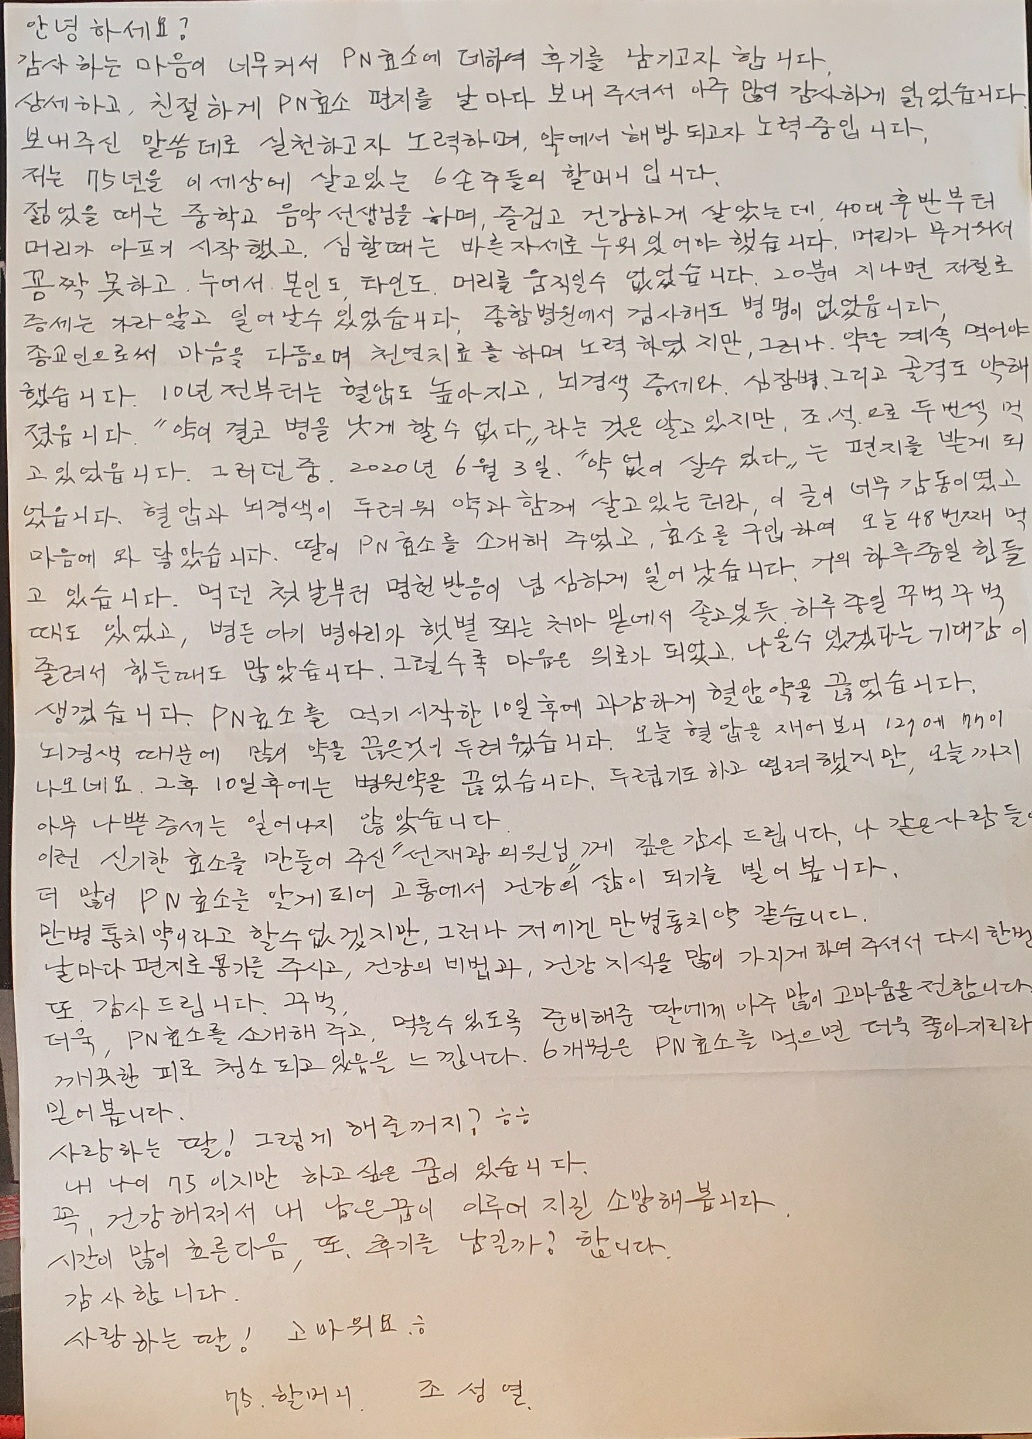 안녕하세요?
감사하는 마음이 너무커서 PN효소에 데하여 후기를 남기고자 합니다.
상세하고, 친절하게 PN효소 편지를 날마다 보내주셔서 아주 많이 감사하게 읽었습니다.
보내주신 말씀데로 실천하고자 노력하며, 약에서 해방되고자 노력중입니다.
저는 75년을 이세상에 살고있는 6손주들의 할머니 입니다.
젊었을 때는 중학교 음악선생님을 하며, 즐겁고 건강하게 살았는데, 40대후반부터
머리가 아프기 시작했고, 심할때는 바른자세로 누워있어야 했습니다. 머리가 무거워서
꼼짝 못하고 누어서 본인도, 타인도 머리를 움직일수 없었습니다. 20분이 지나면 저절로
증세는 가라앉고 일어날수 있었습니다. 종합병원에서 검사해도 병명이 없었읍니다,
종교인으로써 마음을 다듬으며 천연치료를 하며 노력 하였지만, 그러나, 약은 계속 먹어야
했습니다. 10년 전부터는 혈압도 높아지고, 뇌경색 증세와, 심장병, 그리고 골격도 약해
졌읍니다. "약이 결코 병을 낫게 할수 없다" 라는 것은 알고있지만, 조.석.으로 두번씩 먹
고있었읍니다. 그러던중, 2020년 6월 3일, "약 없이 살수 있다" 는 편지를 받게 되
었읍니다. 혈압과 뇌경색이 두려워 약과 함께 살고있는 터라, 이 글이 너무 감동이였고
마음에 와 닿았습니다. 딸이 PN효소를 소개해 주었고, 효소를 구입하여 오늘 48번째 먹
고 있습니다. 먹던 첫날부터 명현반응이 넘 심하게 일어났습니다. 거의 하루종일 힘들
때도 있었고, 병든 아기 병아리가 햇볕 쬐는 처마 밑에서 졸고있듯 하루 종일 꾸벅꾸벅
졸려서 힘든때도 많았습니다. 그럴수록 마음은 위로가 되었고, 나을수 있겠다는 기대감이
생겼습니다. PN효소를 먹기 시작한 10일후에 과감하게 혈압약을 끊었습니다.
뇌경색 때문에 많이 약을 끊은것이 두려웠습니다. 오늘 혈압을 재어보니 127에 77이
나오네요. 그후 10일후에는 병원약을 끊었습니다. 두렵기도 하고 떨려했지만, 오늘까지
아무 나쁜증세는 일어나지 않았습니다.
이런 신기한 효소를 만들어 주신 "선재광 의원님" 께 깊은 감사 드립니다, 나 같은사람들이
더 많이 PN효소를 알게되어 고통에서 건강의 삶이 되기를 빌어 봅니다.
만병통치약이라고 할수없겠지만, 그러나 저에겐 만병통치약 같습니다.
날마다 편지로 용기를 주시고, 건강의 비법과, 건강 지식을 많이 가지게 하여 주셔서 다시한번
또, 감사드립니다. 꾸벅,
더욱, PN효소를 소개해 주고, 먹을수 있도록 준비해준 딸에게 아주 많이 고마움을 전합니다.
깨끗한 피로 청소되고 있음을 느낍니다. 6개월은 PN효소를 먹으면 더욱 좋아지리라
믿어봅니다.
사랑하는 딸! 그렇게 해줄꺼지? ㅎㅎ
내 나이 75 이지만 하고싶은 꿈이 있습니다.
꼭, 건강해져서 내 남은꿈이 이루어 지길 소망해봅니다.
시간이 많이 흐른다음, 또, 후기를 남길까? 합니다.
감사합니다.
사랑하는 딸! 고마워요.ㅎ
75. 할머니 조성열.